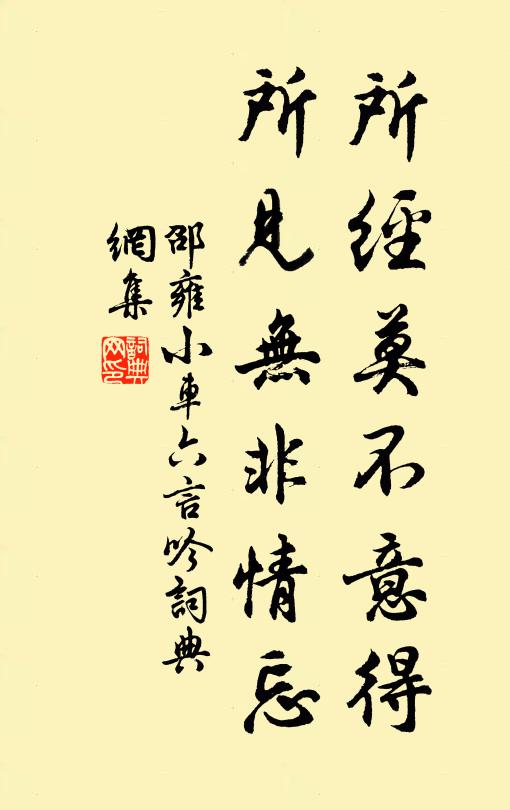 所經莫不意得
所見無非情忘
邵雍小車六言吟詞典
網集
詞典
网印